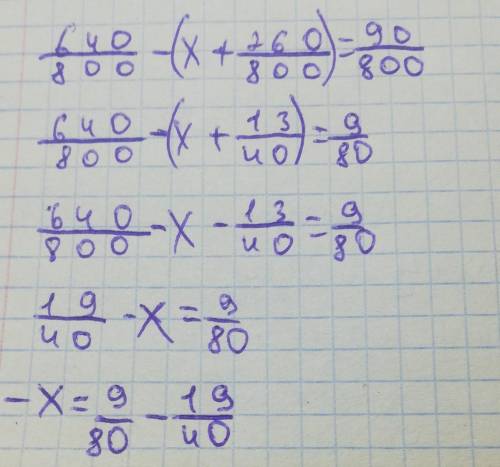 640/800 - (x + 260/800) = 90/800
640/800 - (x + 13/40) = 9/80
640/800 - x - 13/40 = 9/80
19/40 - x = 9/80
- x = 9/80 - 19/40